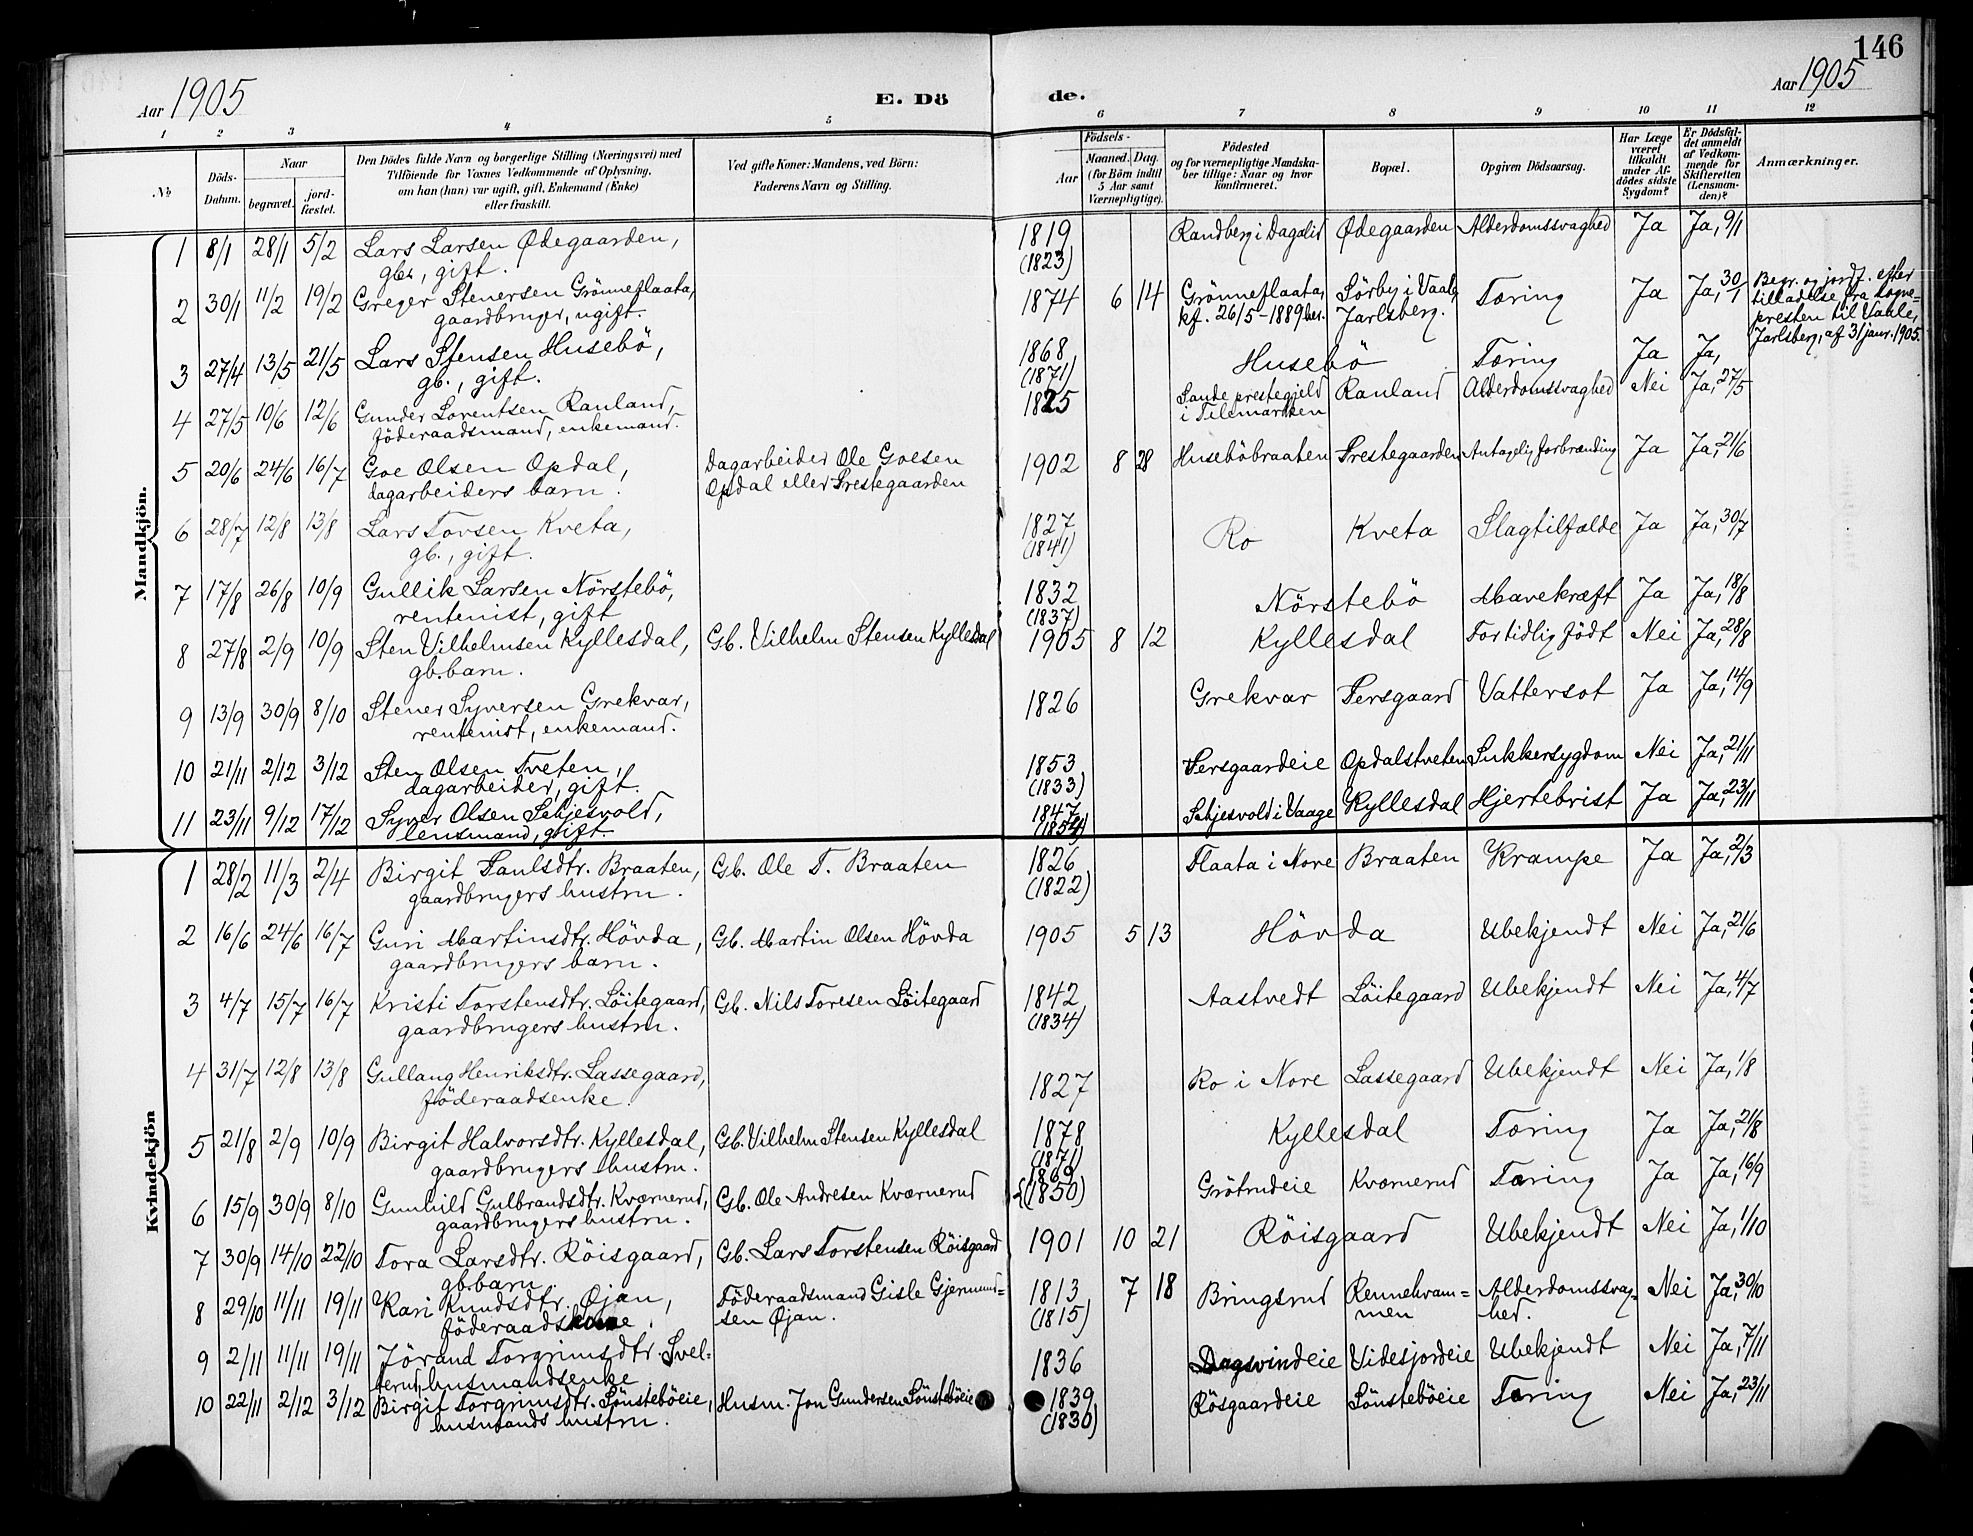 146
Aar 1905 E. Dö de. Aar 1905
1 2 3 4 5 6 7 8 9 10 11 12
№ Döds-Datum. Naar begravet. jord-fæstet. Den Dödes fulde Navn og borgerlige Stilling (Næringsvei) med Tilföiende for Voxnes Vedkommende af Oplysning, om han (hun) var ugift, gift, Enkemand (Enke) eller fraskilt. Ved gifte Koner: Mandens, ved Börn: Faderens Navn og Stilling. Födsels- Aar Maaned. Dag. (for Börn indtil 5 Aar samt Værnepligtige). Födested og for værnepligtige Mandskaber tillige: Naar og hvor konfirmeret. Bopæl. Opgiven Dödsaarsag. Har Læge været tilkaldt under Afdödes sidste Sygdom? Er Dödsfaldet anmeldt af Vedkommende for Skifteretten (Lensmanden)? Anmærkninger.
Mandkjön.
1 8/1 28/1 5/2 Lars Larsen Ødegaarden, 1819 Randberg i Dagalid Ødegaarden Alderdomssvaghed Ja Ja, 9/1
gbr., gift. (1823)
2 30/1 11/2 19/2 Greger Stenersen Grönneflaata, 1874 6 14 Grönneflaata, Sörby i Vaale, Tæring Ja Ja, 30/1 Begr. og jordf. efter
gaardbruger, ugift. kf. 26/5-1889 her. Jarlsberg. tilladelse fra sogne-
presten til Vaale,
Jarlsberg, af 31 janur. 1905.
3 27/4 13/5 21/5 Lars Stensen Husebö, 1868 Husebö Tæring Ja Ja,
gb., gift. (1871)
4 27/5 10/6 12/6 Gunder Lorentsen Rauland, 1825 Sande prestegjeld Rauland Alderdomssvaghed Nei Ja, 27/5
föderaadsmand, enkemand. i Tilemarken
5 20/6 24/6 16/7 Goe Olsen Opdal, Dagarbeider Ole Goesen 1902 8 28 Huseböbraaten Prestegaarden Antagelig forbrænding Ja Ja, 21/6
dagarbeiders barn. Opdal eller Prestegaarden
6 28/7 12/8 13/8 Lars Torsen Kveta, 1827 Ro Kveta Slagtilfælde Ja Ja, 30/7
gb., gift. (1841)
7 17/8 26/8 10/9 Gullik Larsen Nörstebö, 1832 Nörstebö Mavekræft Ja Ja, 18/8
rentenist, gift (1837)
8 27/8 2/9 10/9 Sten Vilhelmsen Kyllesdal, Gb. Vilhelm Stensen Kyllesdal 1905 8 12 Kyllesdal Fortidlig födt Nei Ja, 28/8
gb.barn.
9 13/9 30/9 8/10 Stener Syversen Grekvar, 1826 Grekvar Persgaard Vattersot Ja Ja, 14/9
rentenist, enkemand.
10 21/11 2/12 3/12 Sten Olsen Tveten, 1853 Persgaardeie Opdalstveten Sukkersygdom Nei Ja, 21/11
dagarbeider, gift. (1833)
11 23/11 9/12 17/12 Syver Olsen Schjesvold, 1847 Schjesvold i Vaage Kyllesdal Hjertebrist Ja Ja, 23/11
lensmand, gift. (1854)
Kvindekjön
1 28/2 11/3 2/4 Birgit Paulsdtr. Braaten, Gb. Ole T. Braaten 1826 Flaata i Nore Braaten Krampe Ja Ja, 2/3
gaardbrugers hustru. (1822)
2 16/6 24/6 16/7 Guri Martinsdtr. Hövda, Gb. Martin Olsen Hövda 1905 5 13 Hövda Ubekjendt Nei Ja, 21/6
gaardbrugers barn.
3 4/7 15/7 16/7 Kristi Torstensdtr. Löitegaard, Gb. Nils Toresen Löitegaard 1842 Aastvedt Löitegaard Ubekjendt Nei Ja, 4/7
gaardbrugers hustru. (1834)
4 31/7 12/8 13/8 Gullaug Henriksdtr. Lassegaard, 1827 Ro i Nore Lassegaard Ubekjendt Nei Ja, 1/8
föderaadsenke.
5 21/8 2/9 10/9 Birgit Halvorsdtr. Kyllesdal, Gb. Vilhelm Stensen Kyllesdal 1878 Kyllesdal Tæring Ja Ja, 21/8
gaardbrugers hustru. (1871)
6 15/9 30/9 8/10 Gunhild Gulbrandsdtr. Kværnerud, Gb. Ole Andresen Kværnerud 1869 (1850) Grötrudeie Kværnerud Tæring Ja Ja, 16/9
gaardbrugers hustru.
7 30/9 14/10 22/10 Tora Larsdtr. Röisgaard, Gb. Lars Torstensen Röisgaard 1901 10 21 Röisgaard Ubekjendt Nei Ja, 1/10
gb.barn.
8 29/10 11/11 19/11 Kari Knudsdtr. Øjan, Föderaadsmand Gisle Gjermund- 1813 7 18 Bringsrud Rennehvam- Alderdomssvag- Nei Ja, 30/10
föderaadskone. sen Øjan. (1815) men hed.
9 2/11 11/11 19/11 Jörand Torgrimsdtr. Svel- 1836 Dagsvindeie Videsjordeie Ubekjendt Nei Ja, 7/11
terud, husmandsenke
10 22/11 2/12 3/12 Birgit Torgrimsdtr. Sönsteböeie, Husm. Jon Gundersen Sönsteböeie 1839 Rösgaardeie Sönsteböeie Tæring Nei Ja, 23/11
husmands hustru. (1830)